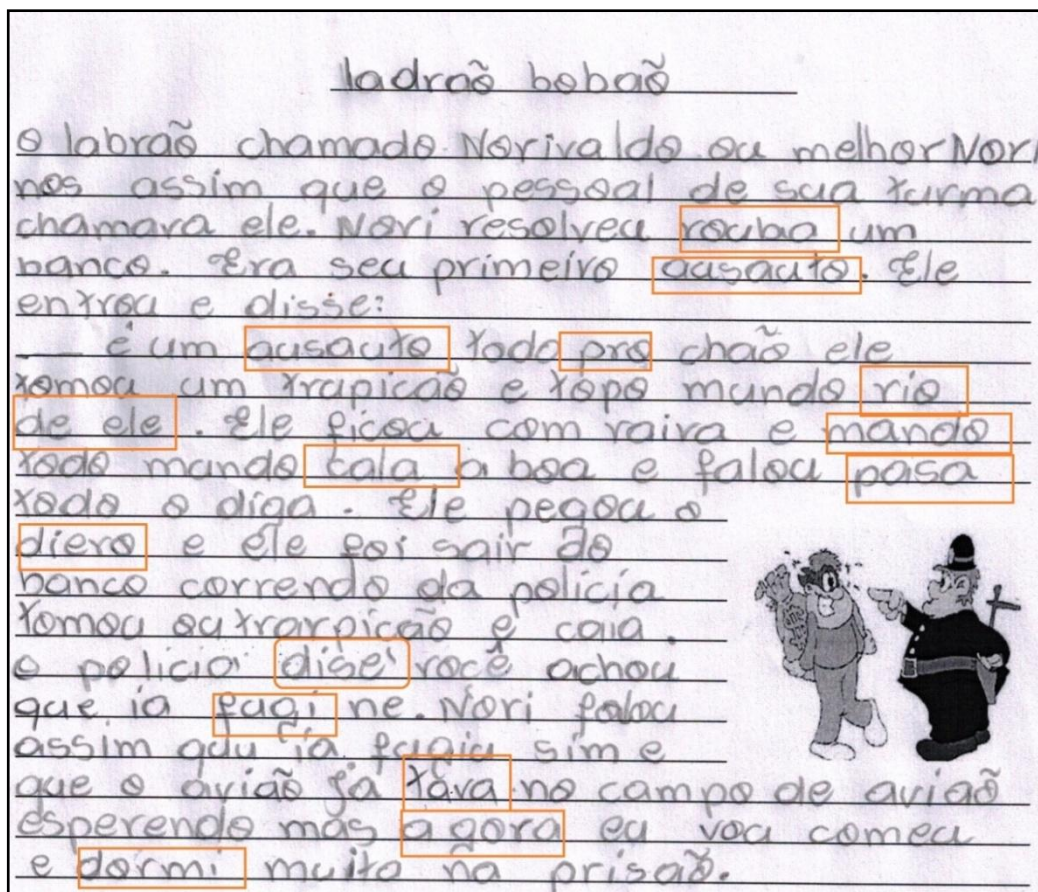 ladraõ bobaõ
o labraõ chamado Norivaldo ou melhor Nori
nos assim que o pessoal de sua turma
chamava ele. Nori resolveu rouba um
banco. Era seu primeiro ausauto. Ele
entrou e disse:
_ é um ausauto todo pro chaõ ele
tomou um trapicaõ e topo mundo rio
de ele. Ele ficou com raiva e mando
todo mundo cala a boa e falou pasa
todo o diga. Ele pegou o
diero e ele foi sair do
banco correndo da policia
tomou outrarpicão e caia.
o policia dise você achou
que ia fugi ne. Nori falou
assim quu ia fugiu sim e
que o avião ja tava no campo de aviaõ
esperendo mas agora eu vou comeu
e dormi muito na prisaõ.